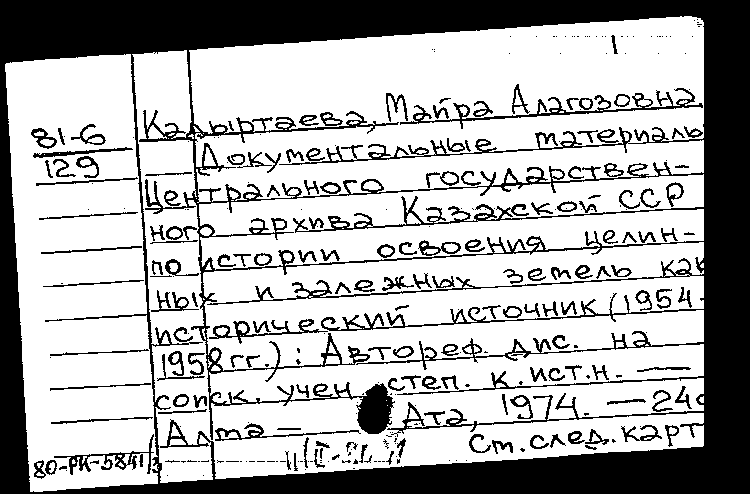 81-6
129
Кадыртаева, Майра Алагозовна.
Документальные материалы
Центрального государствен-
ного архива Казахской ССР
по истории освоения целин-
ных и залежных земель как
исторический источник (1954-
1958гг.): Автореф. дис. на
соиск. учен. степ. к.ист.н. —
Алма - Ата, 1974. — 24с
См. след. карт
80-РК-5841/3